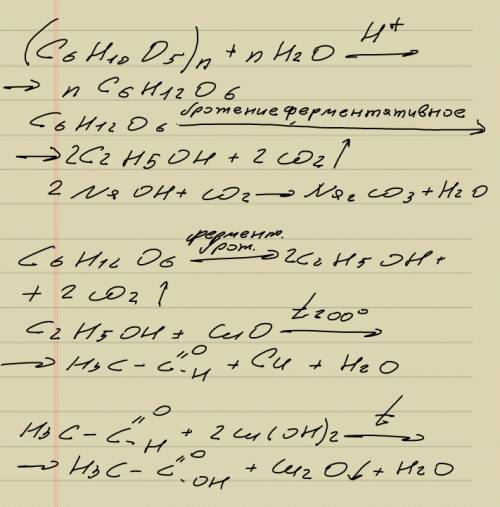 (C6H10O5)n + nH2O H+ →
→ n C6H12O6
C6H12O6 брожение ферментативное →
→ 2C2H5OH + 2CO2↑
2 NaOH + CO2 → Na2CO3 + H2O
C6H12O6 фермент. брож. → 2C2H5OH +
+ 2CO2↑
C2H5OH + CuO t 200° →
→ H3C - C =O -H + Cu + H2O
H3C - C =O -H + 2Cu(OH)2 t →
→ H3C - C =O -OH + Cu2O↓ + H2O